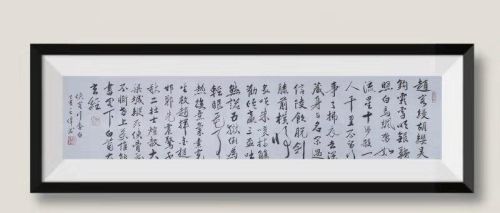 趙客縵胡纓吳
鉤霜雪明銀鞍
照白馬颯沓如
流星十步殺一
人千里不留行
事了拂衣去深
藏身與名閑過
信陵飲脫劍
膝前橫將
炙啖朱亥持觴
勸侯嬴三杯吐
然諾五嶽倒為
輕眼花耳
熱後意氣素霓
生救趙揮金槌
邯鄲先震驚千
秋二壯士烜赫大
梁城縱死俠骨香
不慚世上英誰能
書閣下白首太
玄經
俠客行李白